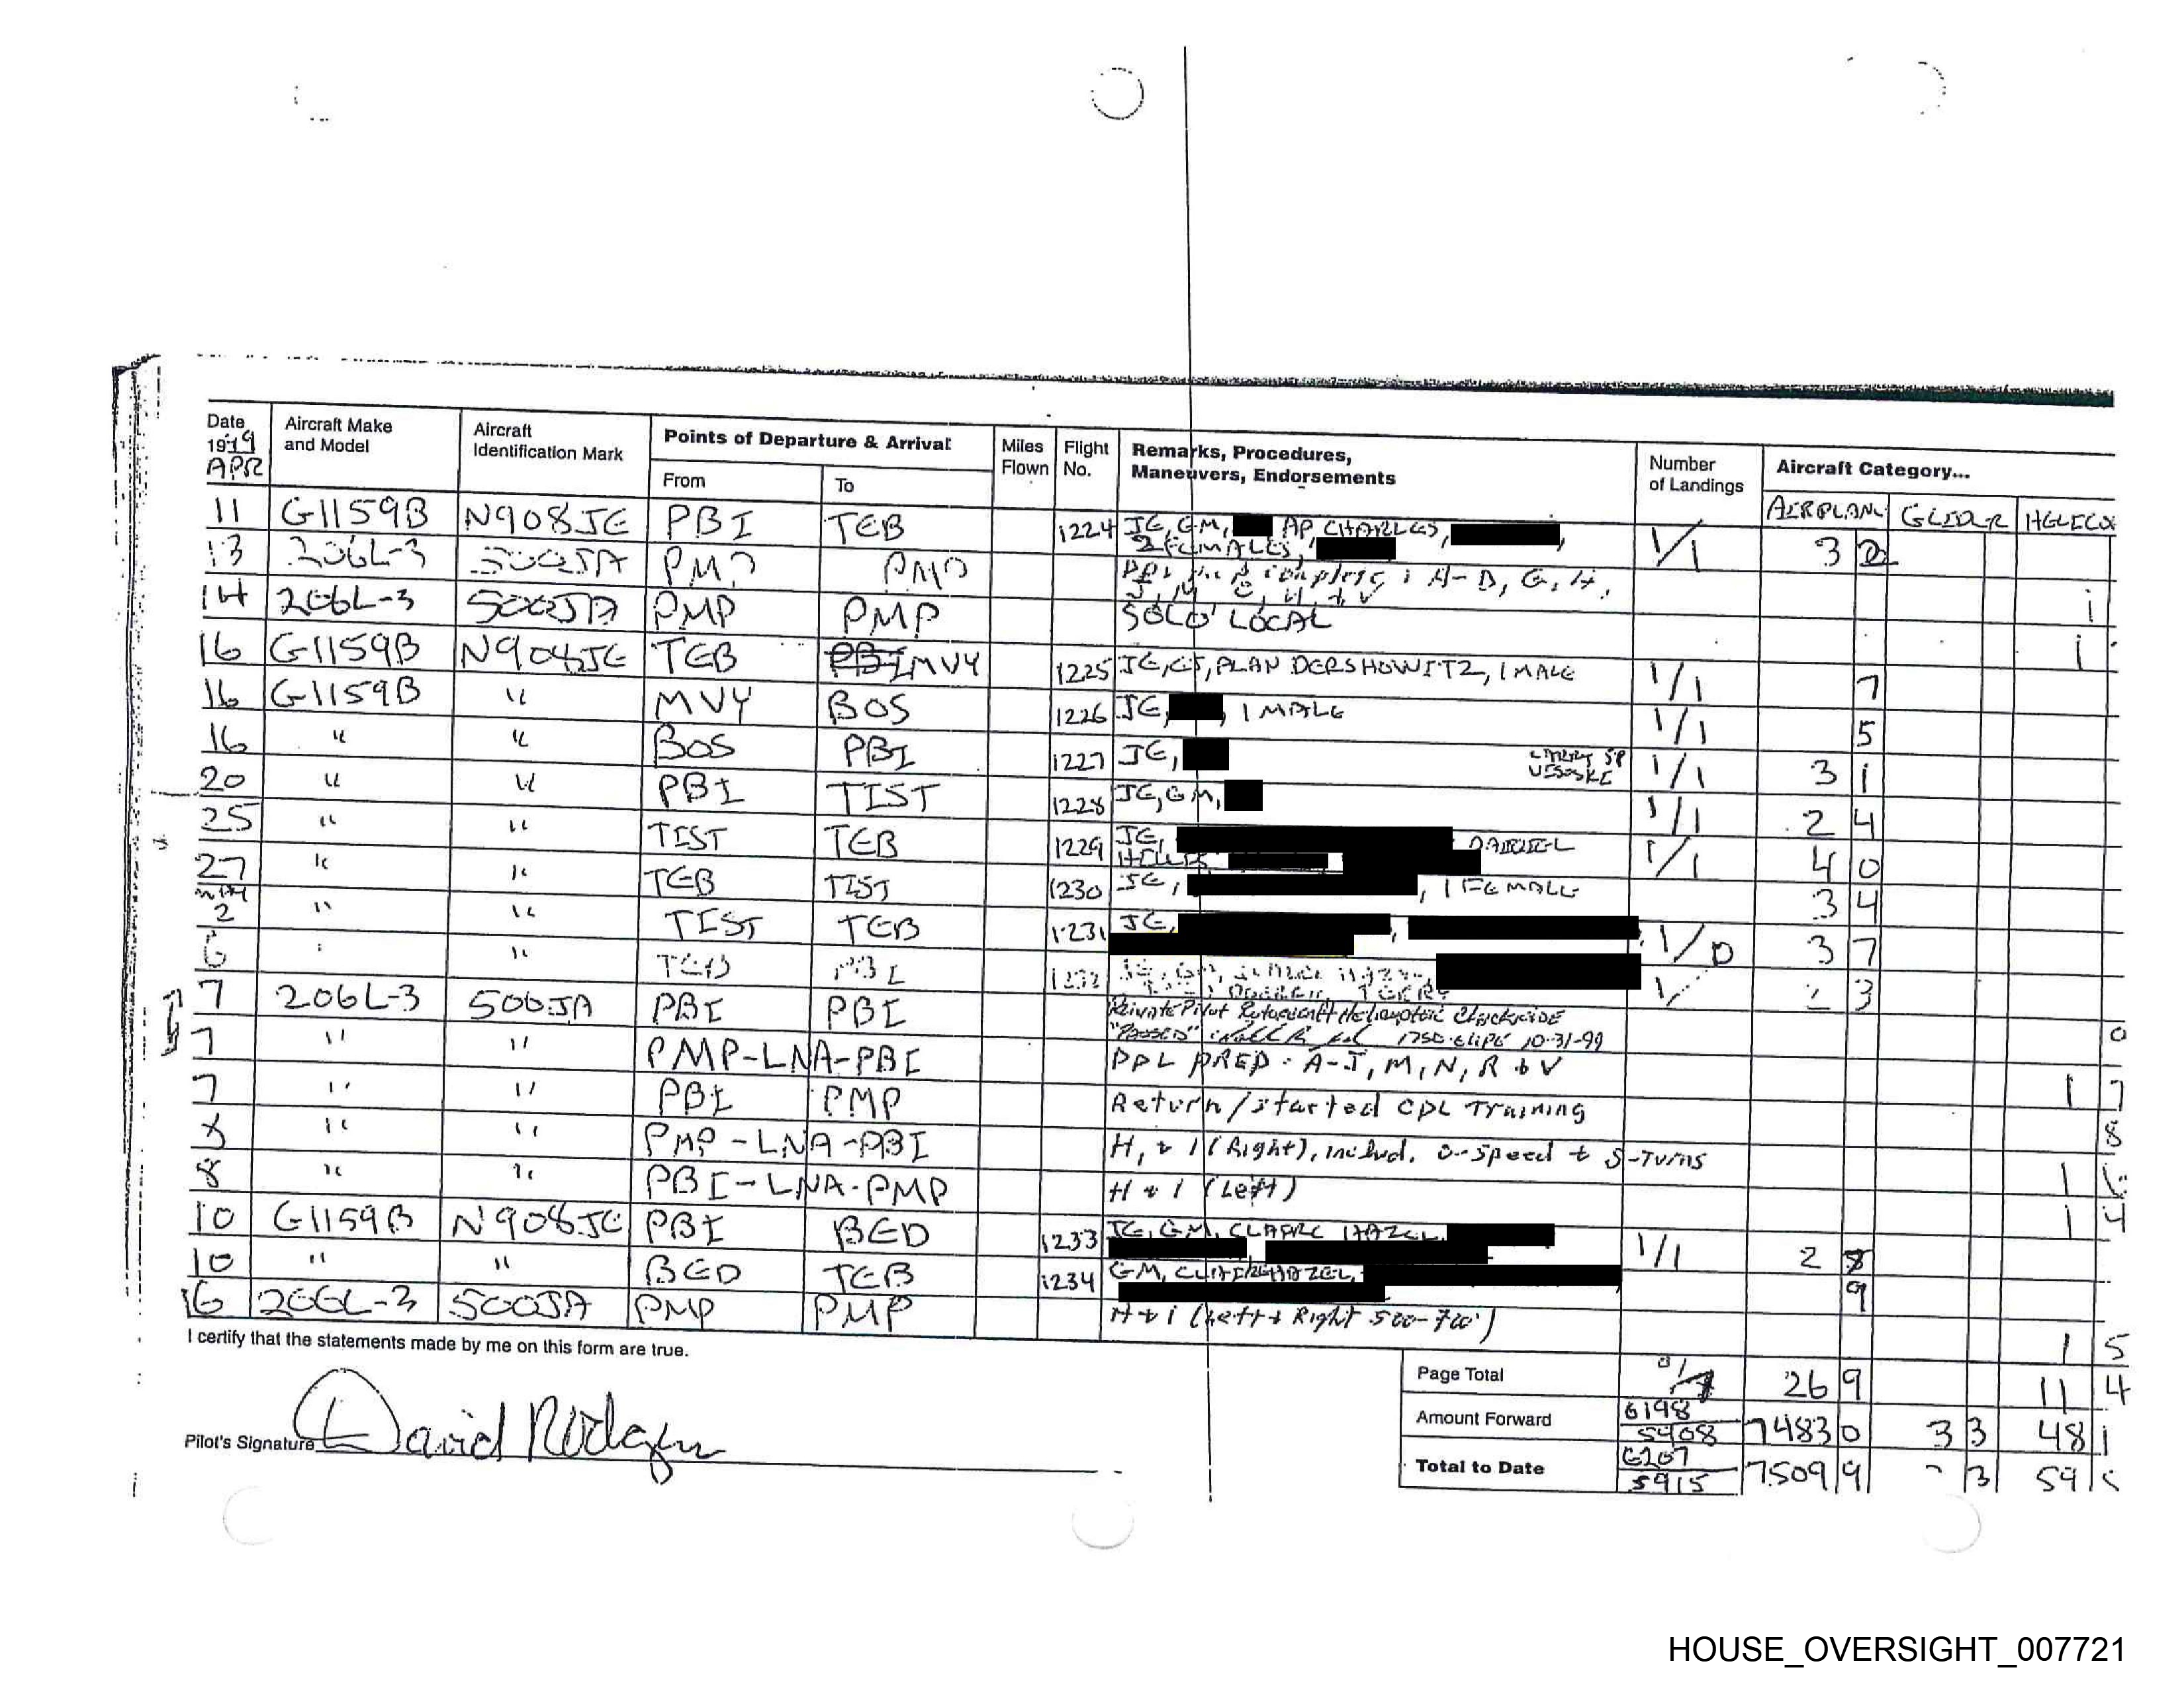 Date
1999
APR
Aircraft Make
and Model
Aircraft
Identification Mark
Points of Departure & Arrival
From
To
Miles
Flown
Flight
No.
Remarks, Procedures,
Maneuvers, Endorsements
Number
of Landings
Aircraft Category...
AIRPLANE GLIDER
11 G1159B N908JE PBI TEB 1224 JE, GM, AP, CHARLES, 1/1 3
2 FEMALES,
13 206L-3 500JA
14 206L-3 500JA PMP PMP SOLO LOCAL
16 G1159B N908JE TEB MVY 1225 DERSHOWITZ, 1 MALE 1/1 7
16 G1159B " MVY BOS 1226 JE, , 1 MALE 1/1 5
16 " " BOS PBI 1227 JE, 1/1 3 1
20 " " PBI TIST 1228 JE, GM, 1/1 2 4
25 " " TIST TEB 1229 JE, 1/1 4 0
27 " " TEB TIST 1230 JE, , 1 FEMALE 3 4
MAY
2 " " TIST TEB 1231 JE, 1/0 3 7
6 " 1232 3
7 206L-3 500JA PBI PBI Private Pilot Rotorcraft Helicopter Checkride
"PASSED" 10-31-99
7 " " PMP-LNA-PBI PPL PREP: A-J, M, N, R & V 1 7
7 " " PBI PMP Return/started CPL Training
8 " " PMP-LNA-PBI H, & I (Right), includ. 0-speed & S-Turns 1
8 " " PBI-LNA-PMP H & I (Left) 1 4
10 G1159B N908JE PBI BED 1233 JE, GM, CLAIRE HAZEL, 1/1 2
10 " " BED TEB 1234 GM, CLAIRE HAZEL, 9
16 206L-3 500JA PMP PMP H & I (Left & Right 500-700') 1 5
I certify that the statements made by me on this form are true.
Page Total 26 9 11 4
Amount Forward 6198 5908 7483 0 3 3 48 1
Total to Date 6207 5915 7509 9 3 59
Pilot's Signature David Rodgers
HOUSE_OVERSIGHT_007721